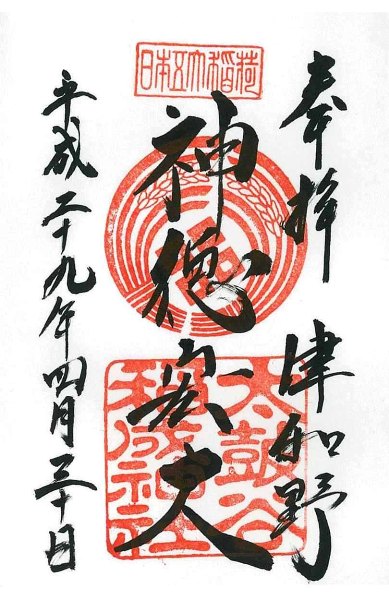 奉拝 津和野
日本五大稲荷
神徳
太鼓谷
稲成神社
平成二十九年四月三十日